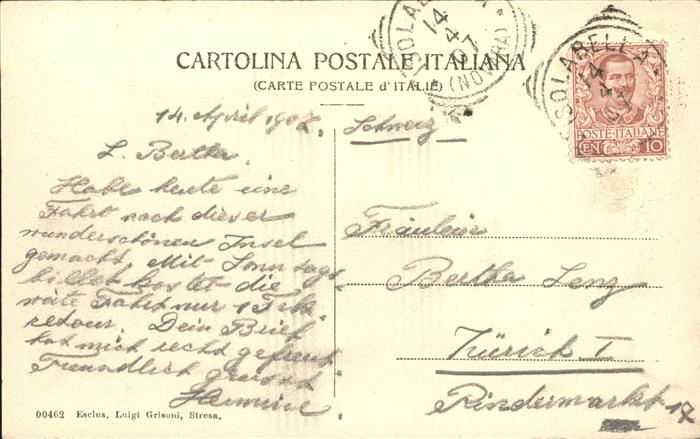 CARTOLINA POSTALE ITALIANA
(CARTE POSTALE d'ITALIE)
ISOLABELLA
14
4
07
(NOVARA)
ISOLABELLA
14
4
07
POSTE·ITALIANE
CEN 10
14. April 1907.
Schweiz
L. Bertha.
Habe heute eine
Fahrt nach dieser
wunderschönen Insel
gemacht. Mit Sonntags
billet kostet die
weite Fahrt nur 1 Frk
retour. Dein Brief
hat mich recht gefreut
Freundlich grüsst
Hermine
Fräulein
Bertha Lenz
Zürich I
Rindermarkt 17
00462 Esclus. Luigi Grisoni, Stresa.